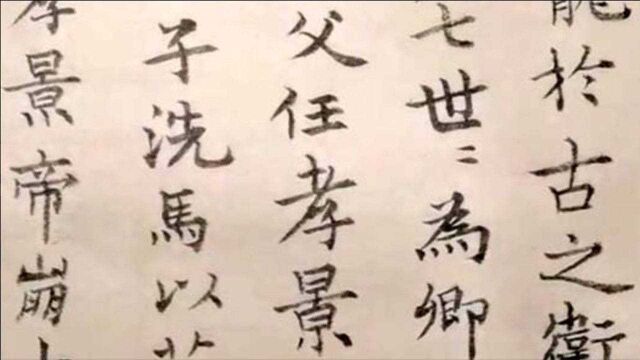 於古之衛
七世〻為卿
父任孝景
子洗馬以
景帝崩